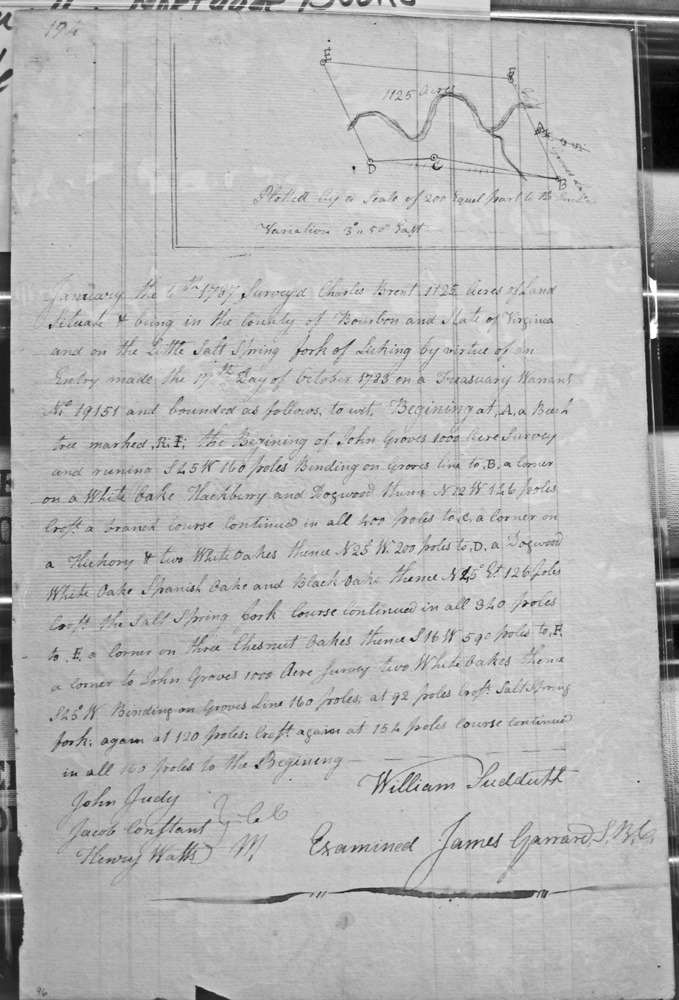 194
E
G
1125 Acres
A
D
C
B
Plotted by a Scale of 200 Equal part to the Inch
Variation 3°" 50' East
January the 6th 1787 Survey'd Charles Brent 1125 Acres of Land
Situate & being in the County of Bourbon and State of Virginia
and on the Little Salt Spring fork of Licking by virtue of an
Entry made the 17th Day of October 1783 on a Treasuary Warant
No 19151 and bounded as follows, to wit, Begining at, A, a Beech
tree marked, R:I; the Begining of John Groves 1000 Acre Survey
and runing S25W 160 poles Binding on Groves line to, B, a Corner
on a White Oake Hackbirry and Dogwood thence N 12 W 126 poles
Crost a branch Course Continued in all 400 poles to, C, a Corner on
a Hickory & two White Oakes thence N25 W. 200 poles to, D, a Dogwood
White Oake Spanish Oake and Black Oake thence N 25° Et 126 poles
Crost the Salt Spring fork Course continued in all 320 poles
to, E, a Corner on three Chesnut Oakes thence S 16 W 590 poles to, F,
a corner to John Groves 1000 Acre Survey two White Oakes thence
S25° W Binding on Groves Line 160 poles; at 92 poles Crost Salt Spring
fork; again at 120 poles; Crost again at 154 poles Course continued
in all 160 poles to the Begining
William Sudduth
John Judy
Jacob Constant } C C
Henry Watts M.
Examined James Garrard, S, B, C,
96